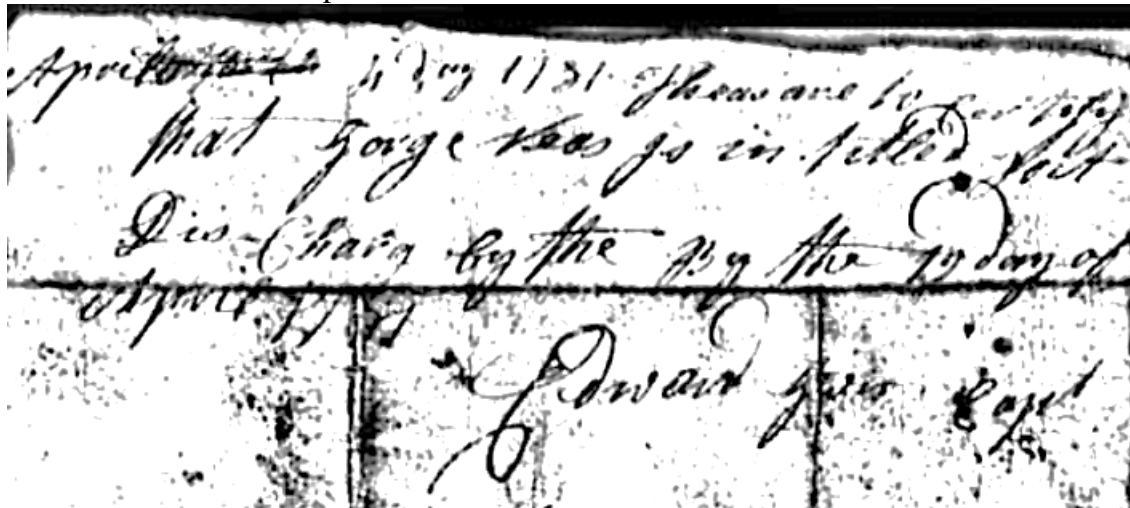 Aprill 4 day 1781 Theas are to Certify
that Gorge is in titled
Dis-Charg by the By the 19 day of
April
Edward Capt